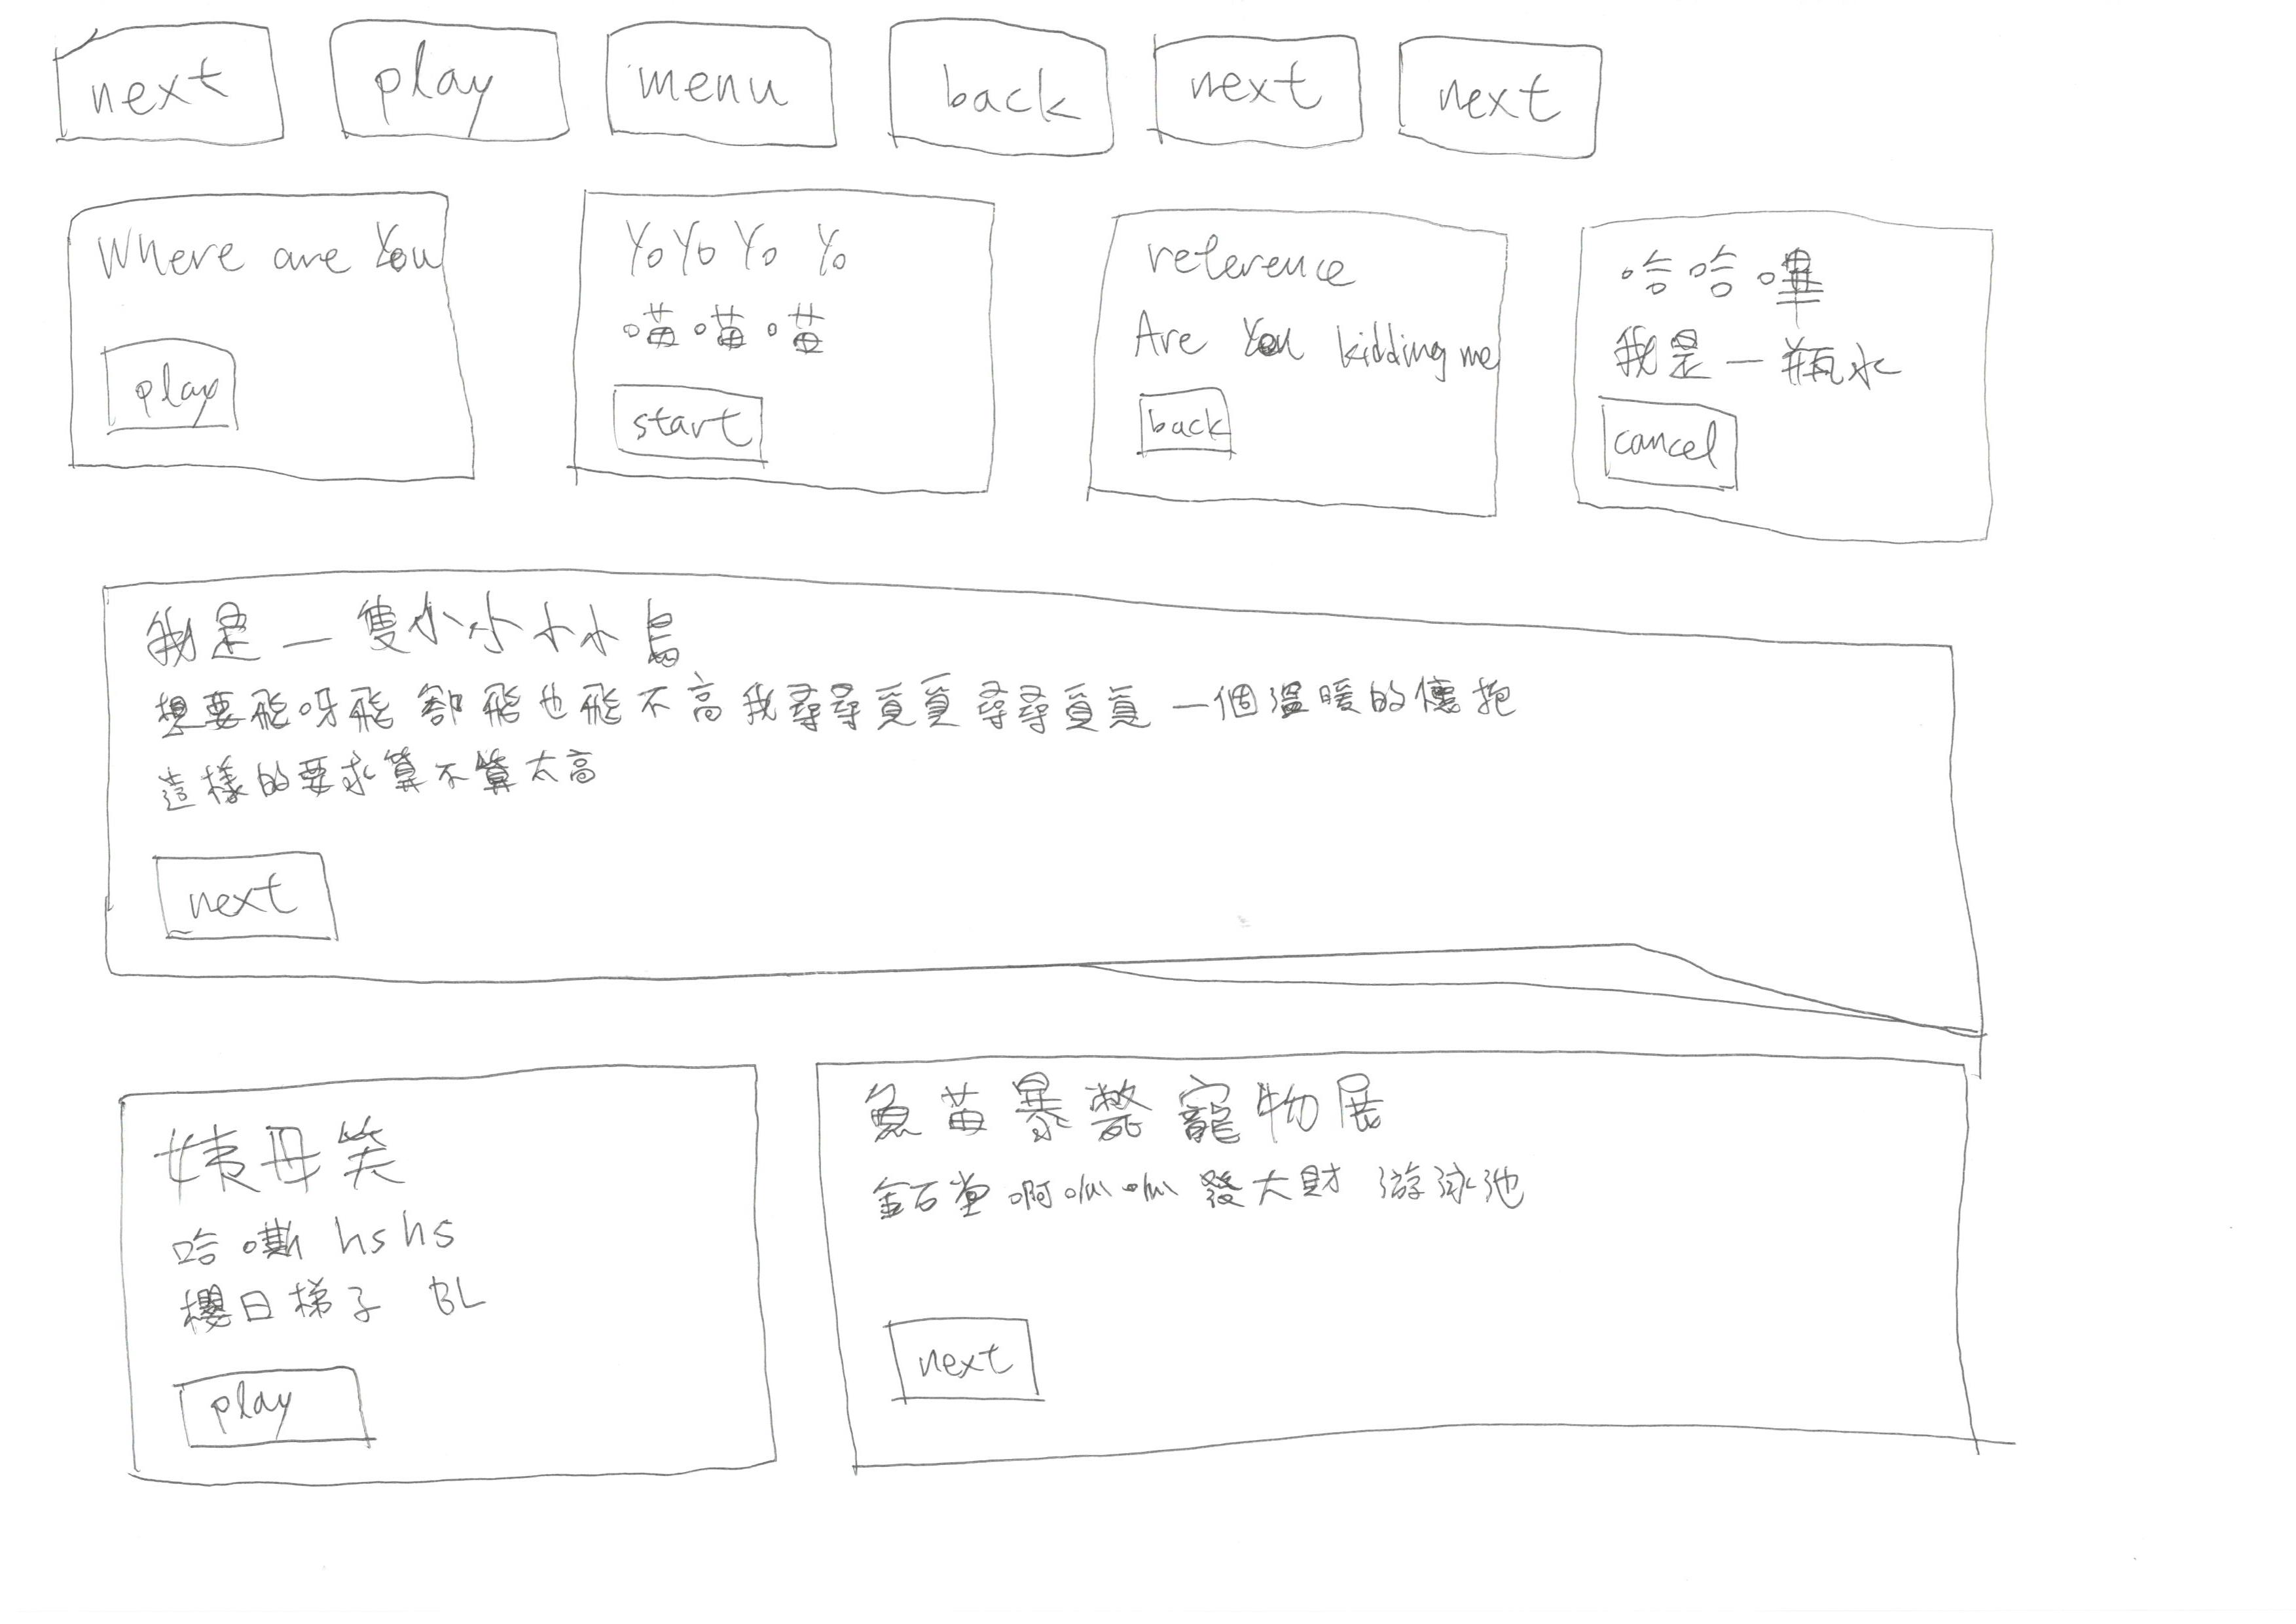 next
play
menu
back
next
next
Where are You
play
Yo Yo Yo Yo
喵喵喵
start
reference
Are You kidding me
back
哈哈嗶
我是一瓶水
cancel
我是一隻小小小小鳥
想要飛呀飛 卻飛也飛不高我尋尋覓覓尋尋覓覓一個溫暖的懷抱
這樣的要求算不算太高
next
姨母笑
哈嘶 hshs
櫻日梯子 BL
play
魚苗暴斃寵物展
金石堂啊呱呱發大財 游泳池
next